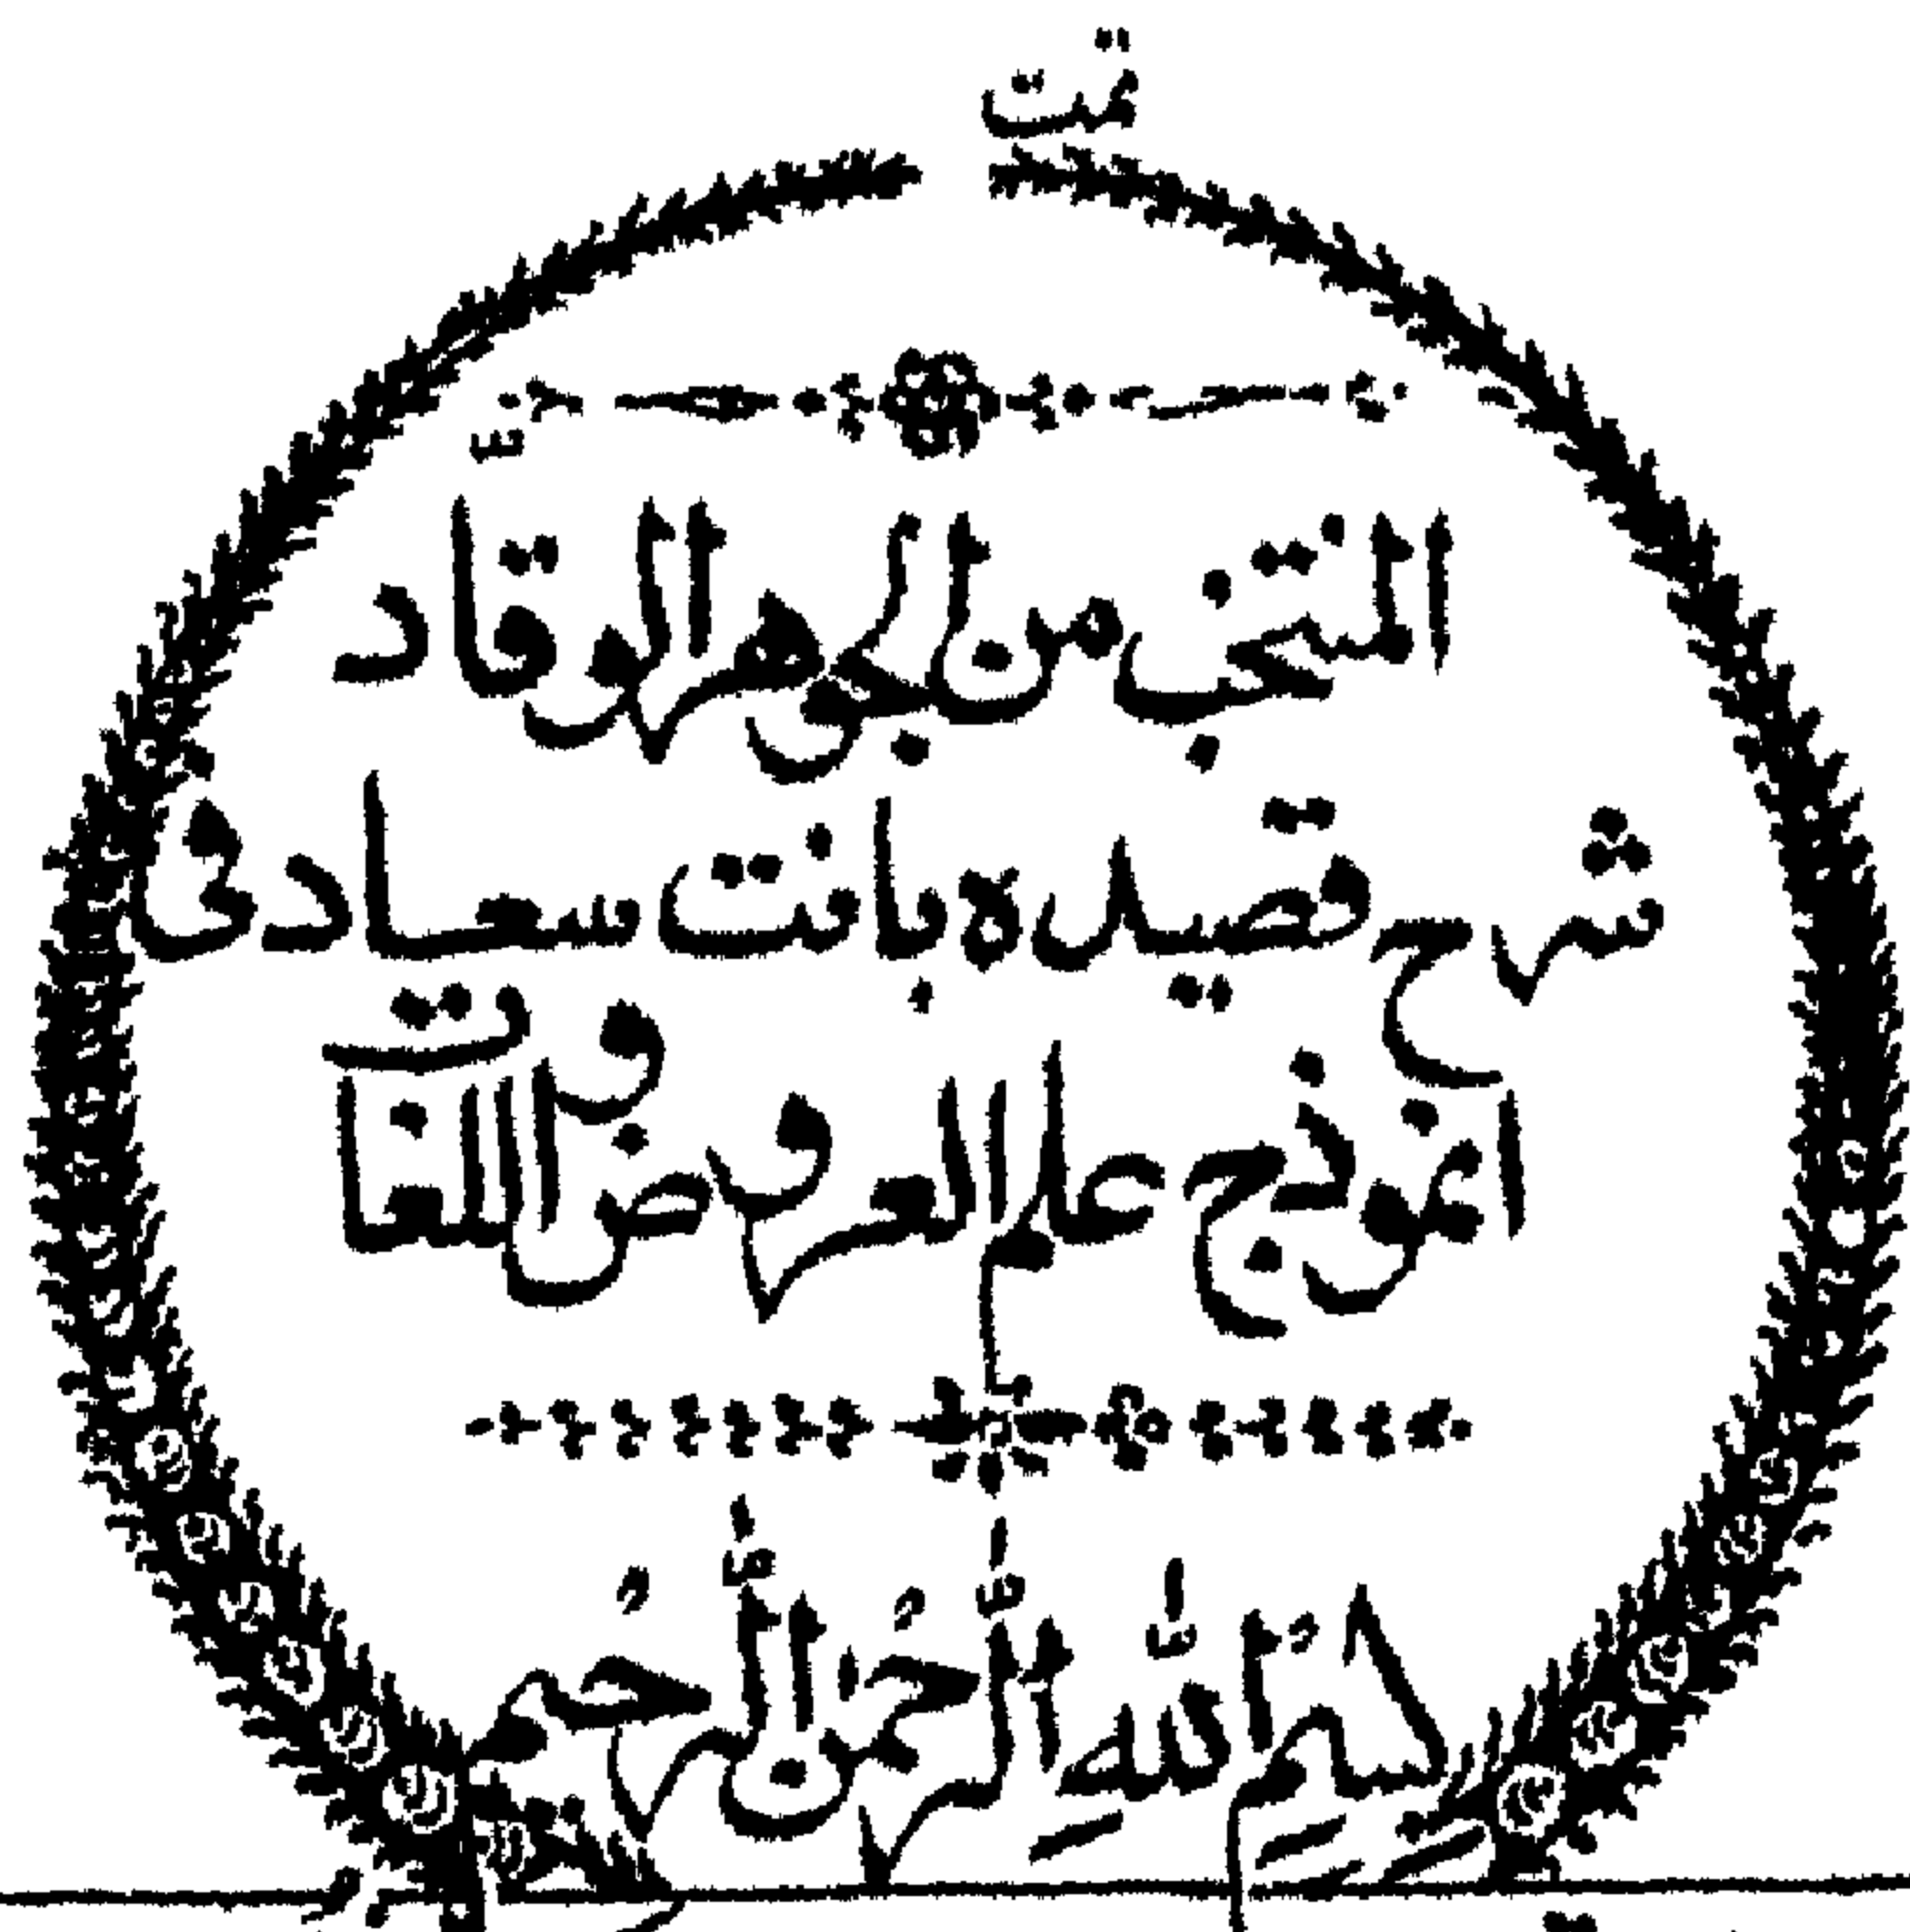 تمت
المنتخب من الجوهر الوقاد
شرح قصيدة بانت سعاد فى
انموذج علم العروض و اللغات
بسم الله الرحمن الرحيم